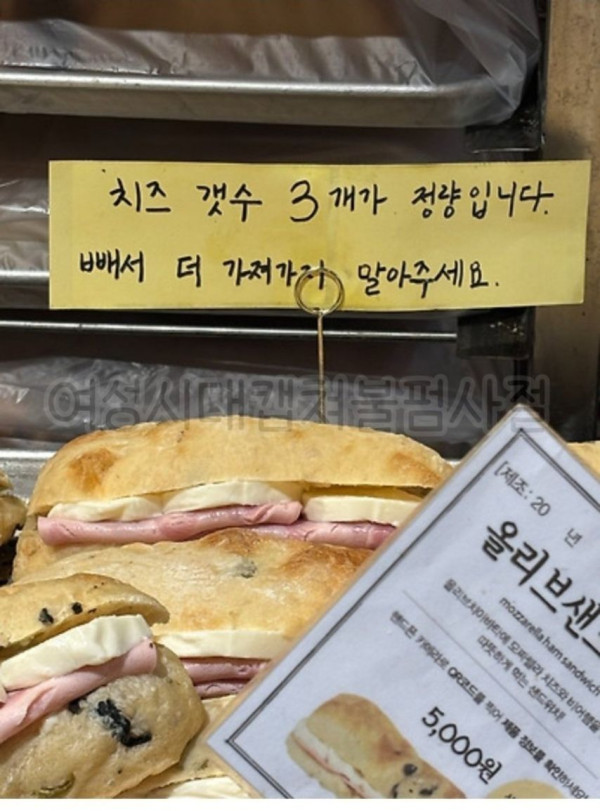 치즈 갯수 3개가 정량입니다.
빼서 더 가져가지 말아주세요.
여성시대캡처불펌사절
[제조: 20 년
올리브샌
mozzarella ham sandwich
올리브치아바타에 모짜렐라 치즈와 비어햄을
따뜻하게 먹는 샌드위치!
핸드폰 카메라로 QR코드를 찍어 제품 정보를 확인하세요
5,000원